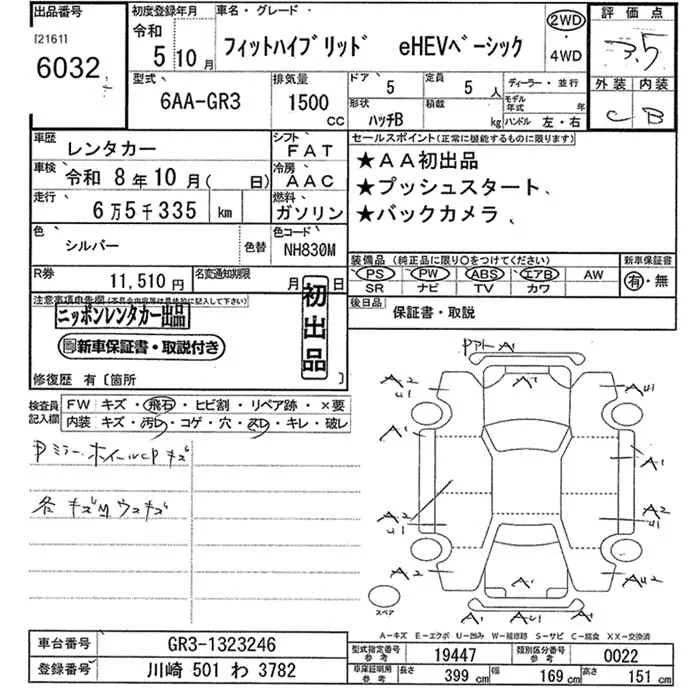 出品番号
[2161]
6032
初度登録年月
令和
5 10 月
車名・グレード
フィットハイブリッド eHEVベーシック
2WD
・
4WD
評価点
3.5
外装 内装
C B
型式
6AA-GR3
排気量
1500
CC
ドア 5
形状
ハッチB
定員 5 人
積載 kg
ディーラー・並行
モデル年式 年
ハンドル 左・右
車歴 レンタカー
シフト FAT
車検 令和 8年10月( 日)
冷房 AAC
走行 6万5千335 km
燃料 ガソリン
色 シルバー 色替
色コード NH830M
セールスポイント(正常に機能するものに限ります)
★AA初出品
★プッシュスタート
★バックカメラ
装備品(純正品に限り○をつけてください)
PS PW ABS エアB AW
SR ナビ TV カワ
新車保証書
有・無
R券 11,510円
名変通知期限 月 日
後日品 保証書・取説
注意事項申告欄(本具合内容等は具体的に記入して下さい)
ニッポンレンタカー出品
新車保証書・取説付き
初出品
修復歴 有〔箇所 〕
検査員記入欄
FW キズ・飛石・ヒビ割・リペア跡・×要
内装 キズ・汚レ・コゲ・穴・スレ・キレ・破レ
Pミラー ホイールCP キズ
各 キズ ウスキズ
A1
A2
U1
AU1
A1
A1
A2
U1
A1
U1
A2
A1
AU2
A1 AU1 A1
スペア
A-キズ E-エクボ U-凹み W-補修跡 S-サビ C-腐食 XX-交換済
車台番号 GR3-1323246
登録番号 川崎 501 わ 3782
型式指定番号 参考 19447
類別区分番号 参考 0022
車庫証明用 参考 長さ 399 cm 幅 169 cm 高さ 151 cm